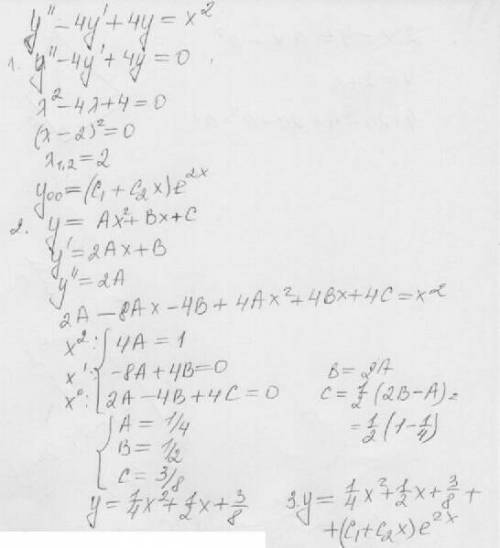 y'' - 4y' + 4y = x²
1. y'' - 4y' + 4y = 0
λ² - 4λ + 4 = 0
(λ - 2)² = 0
λ₁,₂ = 2
y₀₀ = (C₁ + C₂x)e²ˣ
2. y = Ax² + Bx + C
y' = 2Ax + B
y'' = 2A
2A - 8Ax - 4B + 4Ax² + 4Bx + 4C = x²
x²: { 4A = 1
x¹: { -8A + 4B = 0
x⁰: { 2A - 4B + 4C = 0
B = 2A
C = 1/2 (2B - A) =
= 1/2 (1 - 1/4)
{ A = 1/4
B = 1/2
C = 3/8
y = 1/4 x² + 1/2 x + 3/8
3. y = 1/4 x² + 1/2 x + 3/8 +
+ (C₁ + C₂x)e²ˣ